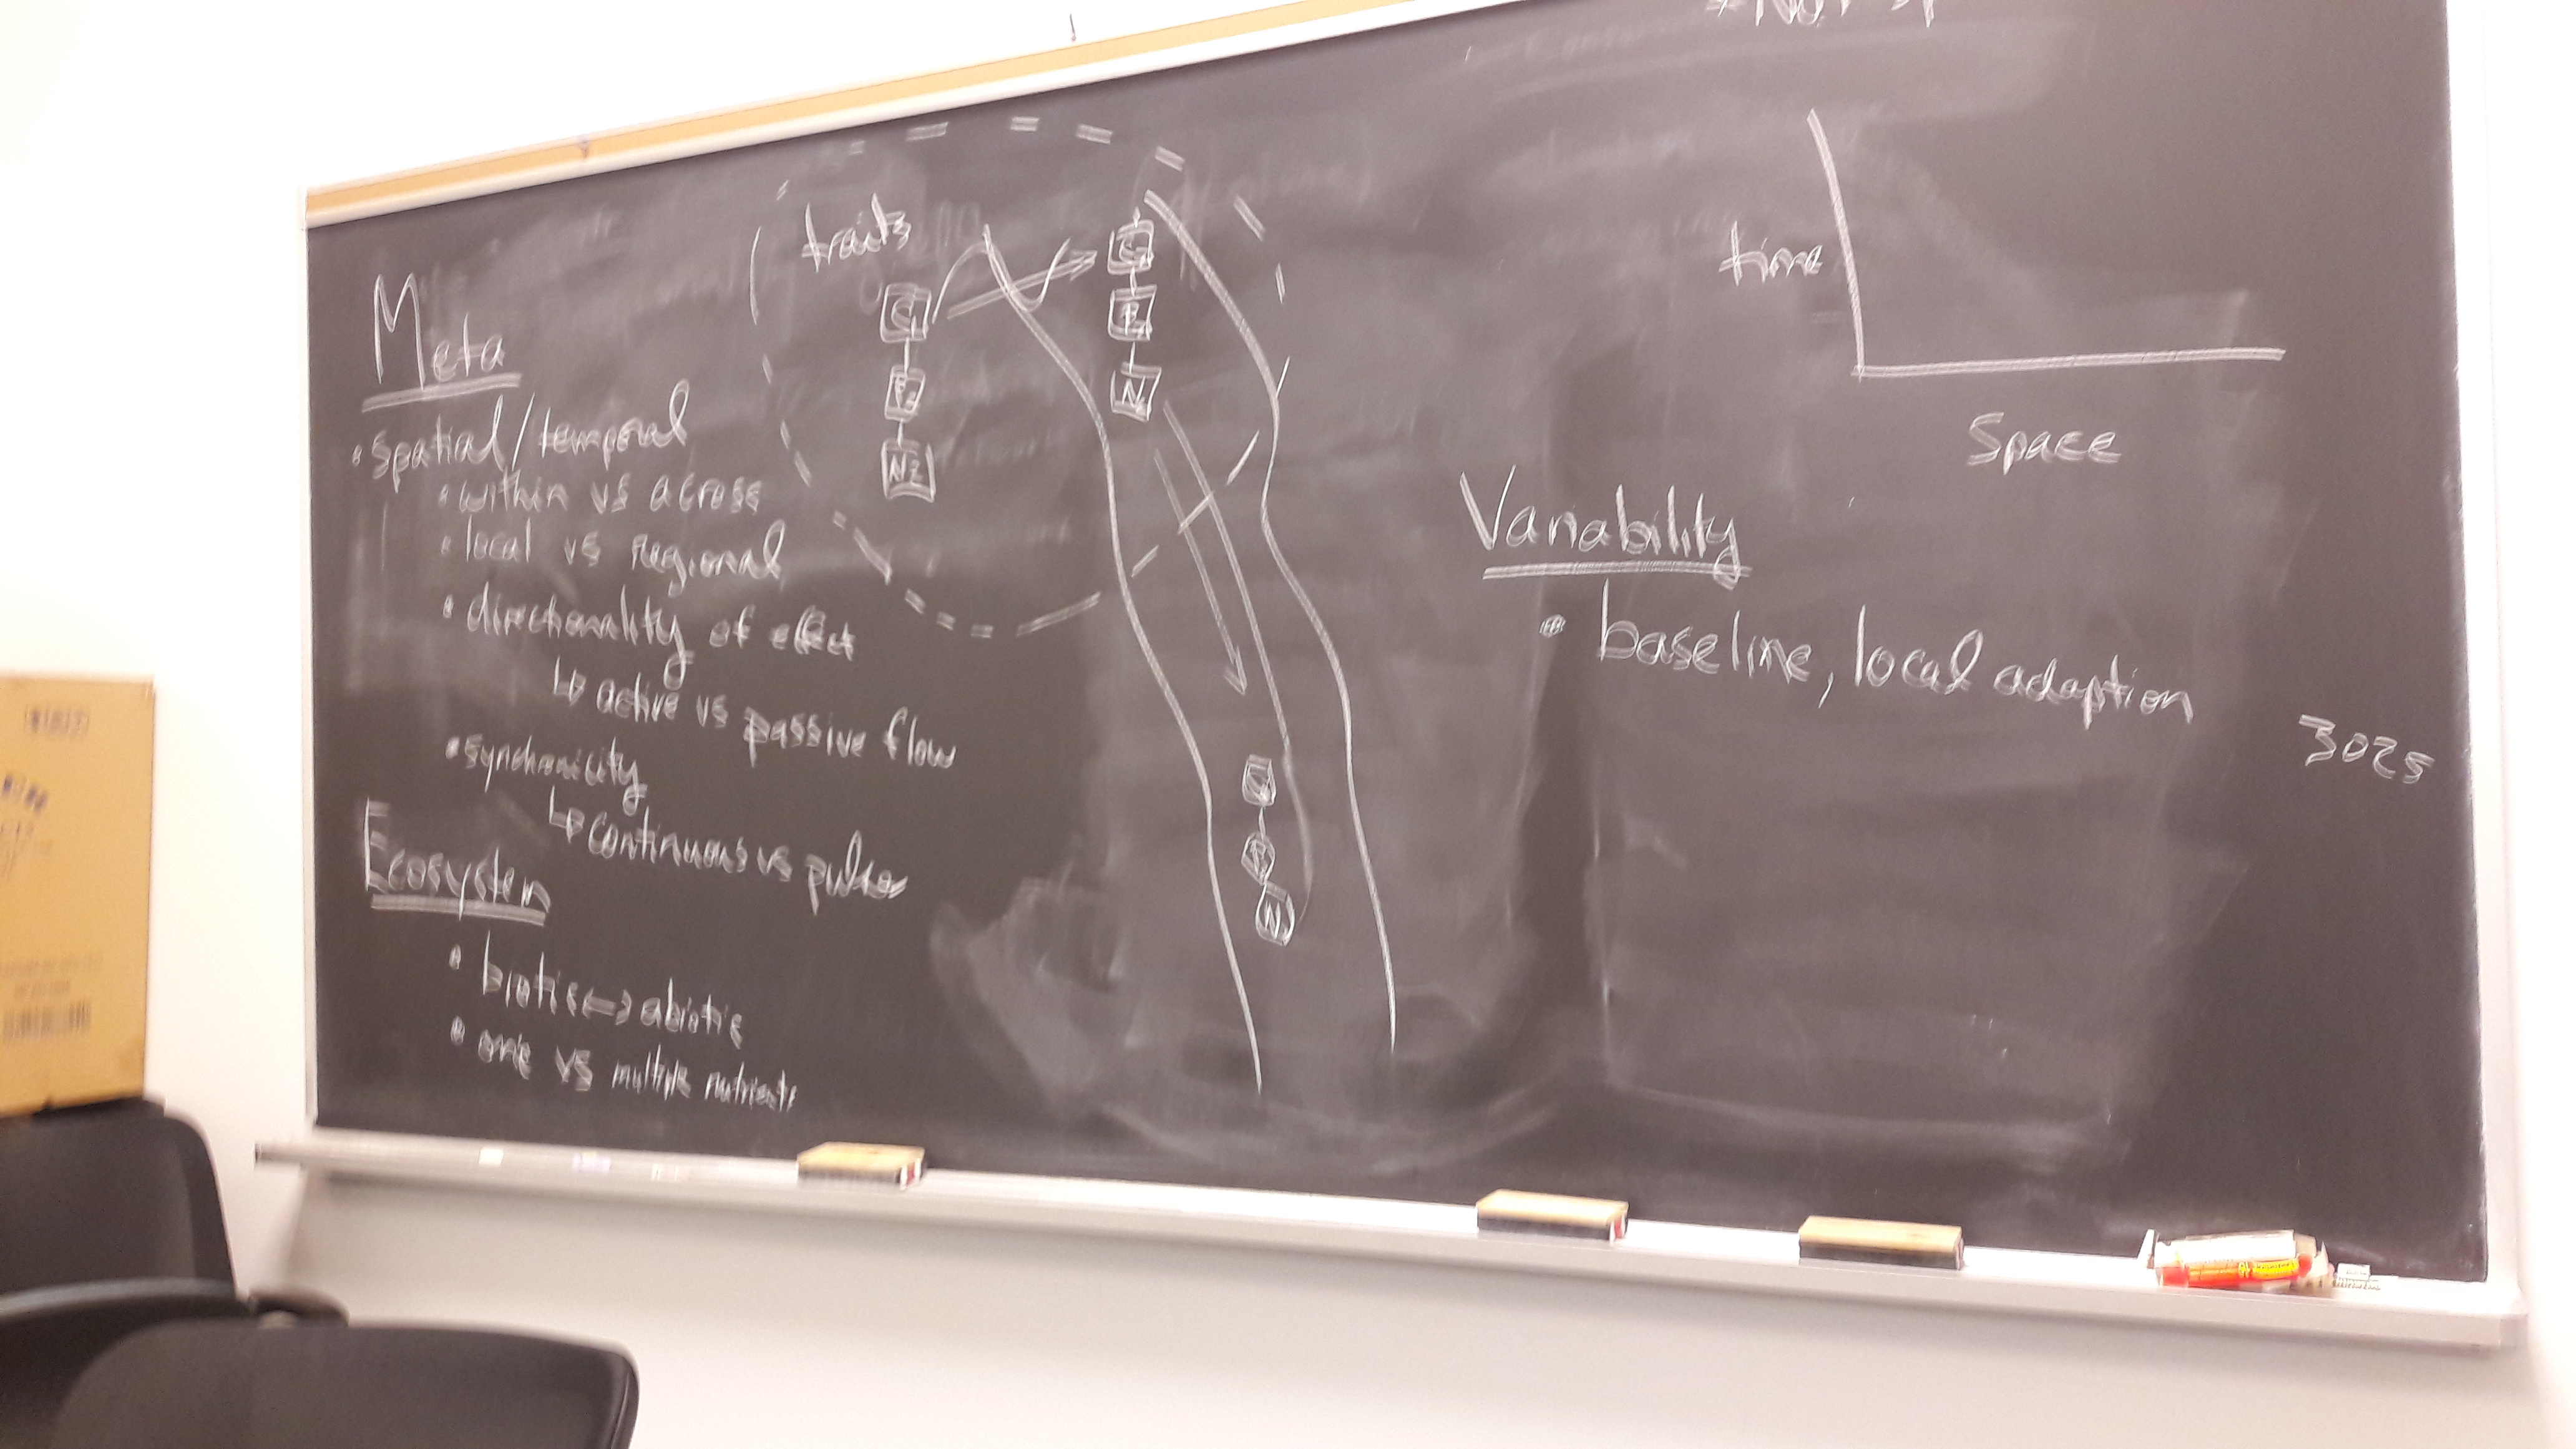 Meta
• spatial/temporal
• within vs across
• local vs regional
• directionality of effect
↳ active vs passive flow
• synchonicity
↳ continuous vs pulse
Ecosystem
• biotic ↔ abiotic
• one vs multiple nutrients
traits
N
time
Space
Variability
• baseline, local adaption
3025